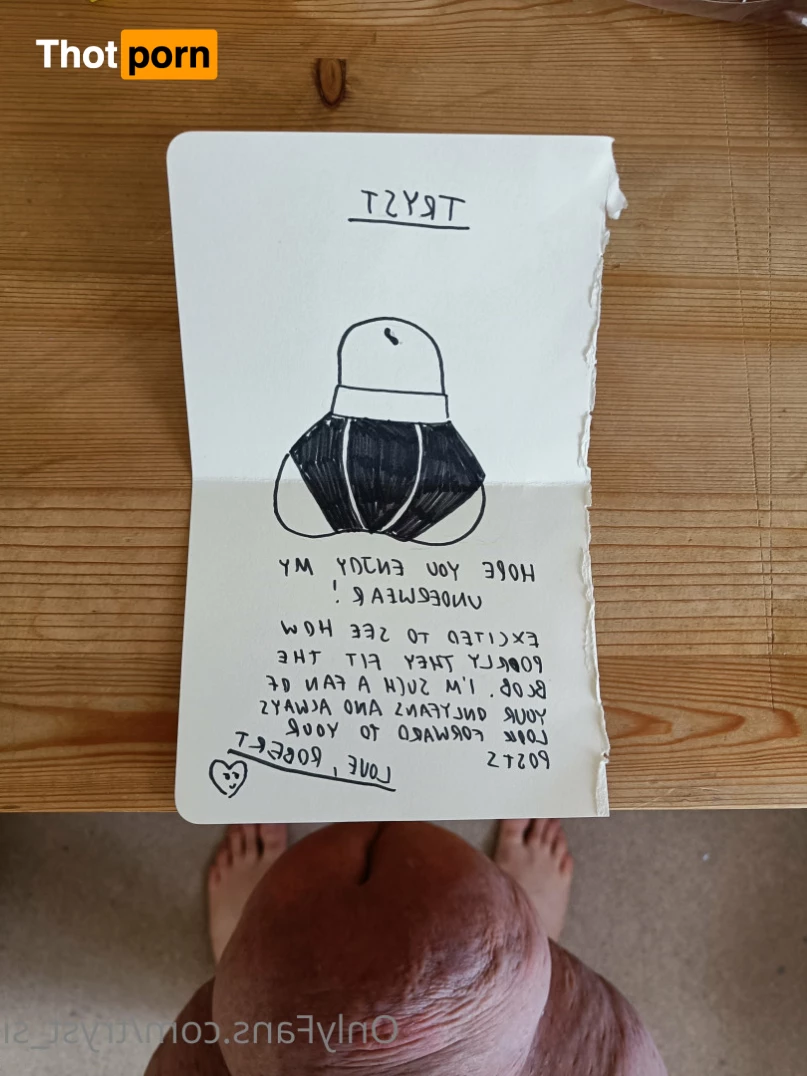 Thotporn
TRYST
HOPE YOU ENJOY MY
UNDERWEAR!
EXCITED TO SEE HOW
POORLY THEY FIT THE
BLOB. I'M SUCH A FAN OF
YOUR ONLYFANS AND ALWAYS
LOOK FORWARD TO YOUR
POSTS
LOVE, ROBERT